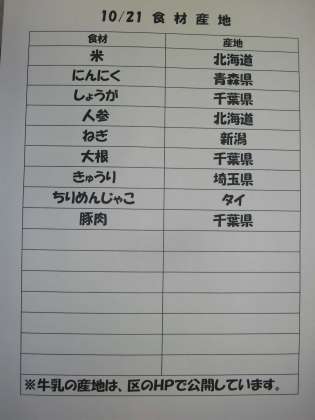 10/21 食材産地
食材 産地
米 北海道
にんにく 青森県
しょうが 千葉県
人参 北海道
ねぎ 新潟
大根 千葉県
きゅうり 埼玉県
ちりめんじゃこ タイ
豚肉 千葉県
※牛乳の産地は、区のHPで公開しています。